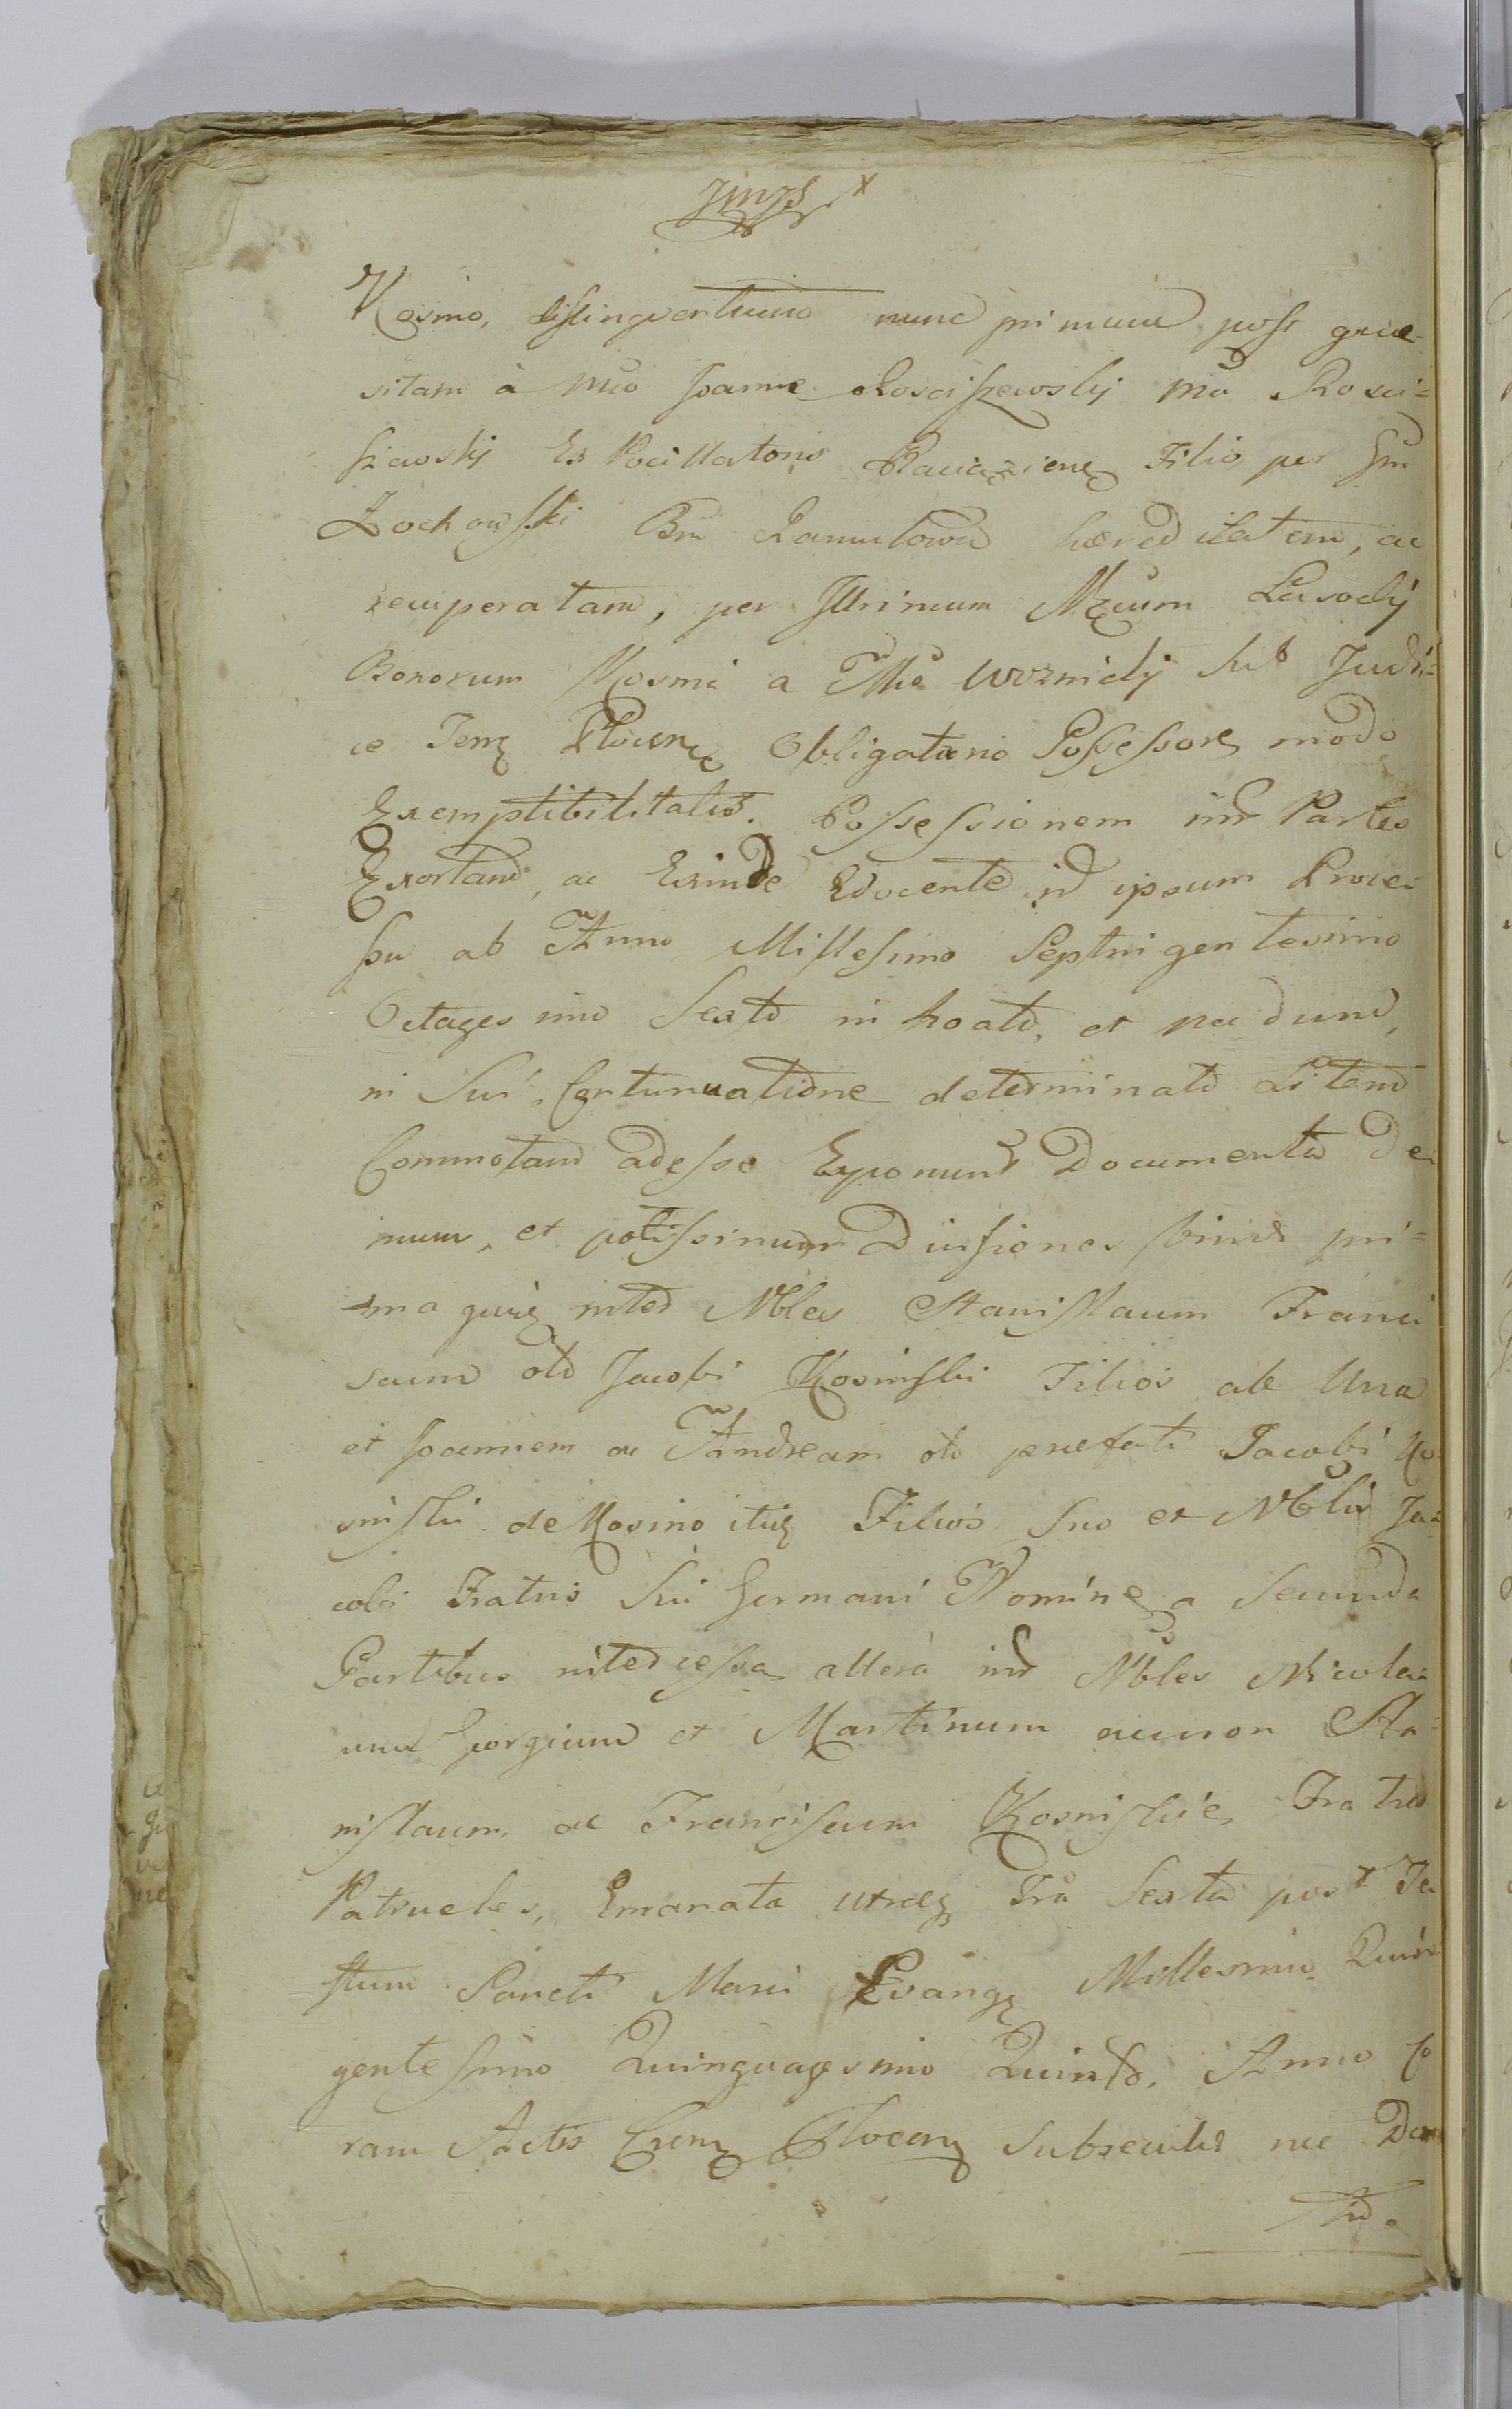 Kosmo, distingvertuno nunc primum post quae-
sitam à Mco Joanne Rosciszewsky Mci Rosci-
szewsky Ex Pocillatoris Raciąziens Filio, per Gm
Żochowski Bm Ramutowo haereditatem, ac
recuperatam, per Illrimum Lasocky
Bonorum Kosmi a Mco Woznicky Sub Judi-
ce Terrs Plocens Obligatorio Possessore, modo
Exemptibilitatis. Possessionem intr Partes
Exortam, ac Exinde Edocente id ipsum Proces-
su ab Anno Millesimo Septingentesimo
Octagesimo Sexto inhoato, et necdum,
in Sui Continuatione determinato Litem
Commotam adesse Exponunt Documenta De-
mum, et potissimum Divisiones binas pri-
ma quis inter Nbles Stanislaum Franci
scum olo Jacobi Kosinski Filios ab Una
et Joannem ac Andream olo praefati Jacobi Ko-
sinski de Kosmo itis Filios Suo et Nblis Ja-
cobi Fratris Sui Germani Nomine, a Secunda
Partibus intercessa, altera intr Nbles Nicola-
um Georgium et Martinum necnon Sta-
nislaum, ac Franciscum Kosinskie, Fratres
Patrueles, Emanata utraq Fria Sexta post Fe-
stum Sancti Marci Evangs Millesimo Quin-
gentesimo Quinquagesimo Quinto, Anno Co
ram Actis Crens Plocens Subsecutis nec Da